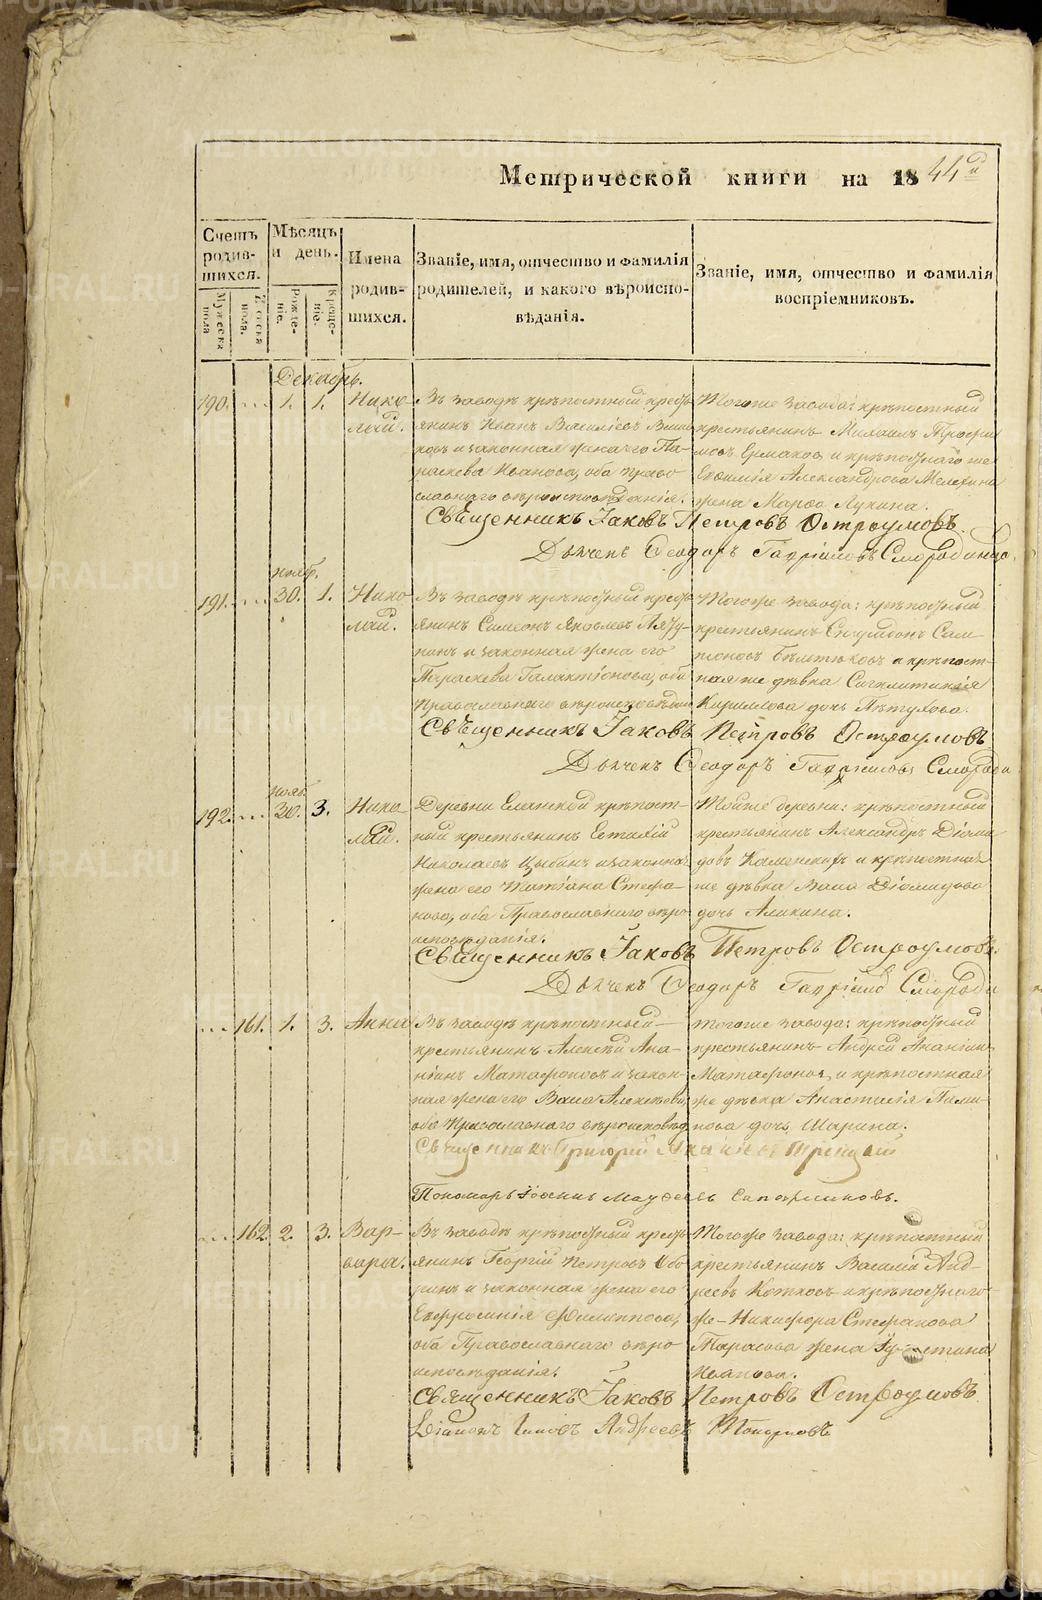 Метрической книги на 1844й
Счетъ родив-шихся.
Мужеска пола
Женска пола.
Мѣсяцъ и день.
Рожде-ніе.
Креще-ніе.
Имена родив-шихся.
Званіе, имя, отчество и фамилія
родителей, и какого вѣроиспо-
вѣданія.
Званіе, имя, отчество и фамилія
воспріемниковъ.
Декабрь.
190. 1. 1. Нико-
лай.
Въ заводѣ крѣпостный кресть-
янинъ Иванъ Василіевъ
и законная жена его Па-
раскева Иванова, оба право
славнаго вѣроисповѣданія.
Тогоже завода: крѣпостный
крестьянинъ Михаилъ Трофи
мовъ Ермаковъ и крѣпостнаго же
Александрова Мелехина
жена Марѳа Лукина.
Священникъ Іаковъ Петровъ Остроумовъ
Дьячекъ Ѳеодоръ Гавріиловъ Смородинцо
нояб.
191. 30. 1. Нико
лай.
Въ заводѣ крѣпостный кресть
янинъ Симеонъ Яковлевъ
и законная жена его
Параскева Галактіонова, оба
Православнаго вѣроисповѣданія
Тогоже завода: крѣпостный
крестьянинъ Спиридонъ Сим
и крѣпост-
ная же дѣвка Сигклитикія
Кирилова дочь Пѣтухова.
Священникъ Іаковъ Петровъ Остроумовъ
Дьячекъ Ѳеодоръ Гавриловъ Смороди
нояб.
192. 30. 3. Нико
лай.
Деревни Еланской крѣпост-
ный крестьянинъ Евтихій
Николаевъ Цыбинъ и законная
жена его Татіана Стефа-
нова, оба Православнаго вѣро
исповѣданія.
Тойже деревни: крѣпостный
крестьянинъ Александръ Діоми
довъ Каменскихъ и крѣпостная
же дѣвка Васса Діомидова
дочь Аликина.
Священникъ Іаковъ Петровъ Остроумовъ.
Дьячекъ Ѳеодоръ Гавріилов Смороди
161. 1. 3. Анна
Въ заводѣ крѣпостный
крестьянинъ Алексѣй Ана-
ніинъ Матафоновъ и закон-
ная жена его Васса Алексѣева,
оба Православнаго вѣроисповѣд
Тогоже завода: крѣпостный
крестьянинъ Андрей Ананіинъ
Матафоновъ, и крѣпостная
же дѣвка Анастасія Пами-
нова дочь Шарина.
Священникъ Григорій
Пономарь Іоаннъ
162. 2. 3. Вар-
вара.
Въ заводѣ крѣпостный кресть
янинъ Георгій Петровъ Обо
ринъ и законная жена его
Евфросинія Филиппова,
оба Православнаго вѣро
исповѣданія.
Тогоже завода: крѣпостный
крестьянинъ Василій Анд-
реевъ Котковъ и крѣпостнаго
же Никифора Стефанова
Тарасова жена
Иванова.
Священникъ Іаковъ Петровъ Остроумовъ
Діаконъ Андреевъ Топорковъ
METRIKI.GASO-URAL.RU